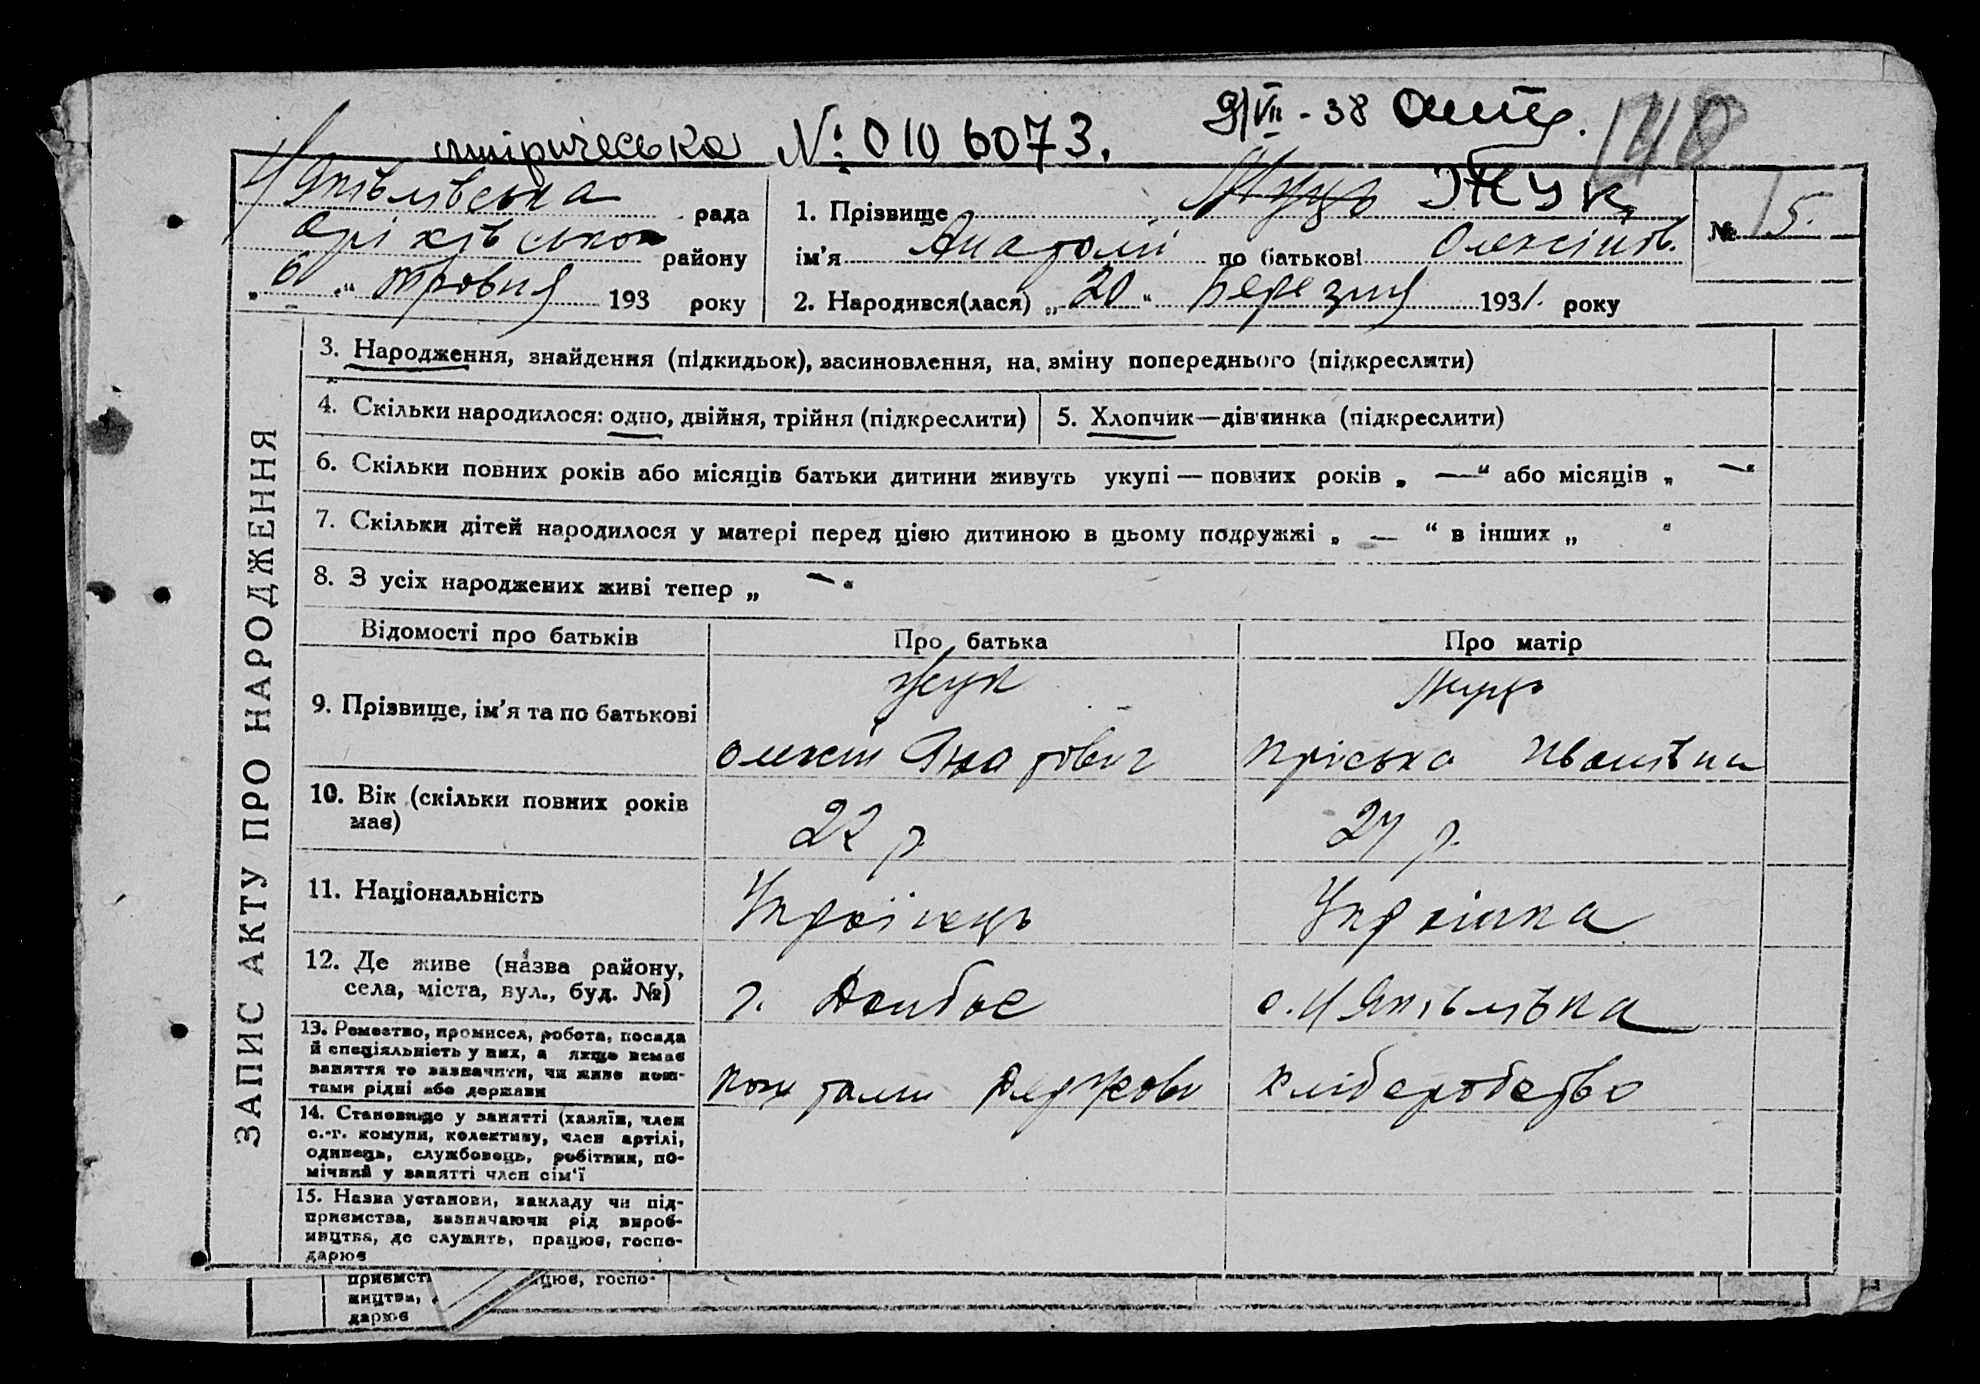 № 0106073. 9/VII - 38
148
рада
1. Прізвище Жук
№ 5.
району
ім'я Анатолій по батькові Олексійов.
„ 6 “ травня 193 року
2. Народився(лася) „ 20 “ березня 1931. року
ЗАПИС АКТУ ПРО НАРОДЖЕННЯ
3. Народження, знайдення (підкидьок), васиновлення, на зміну попереднього (підкреслити)
4. Скільки народилося: одно, двійня, трійня (підкреслити)
5. Хлопчик—дівчинка (підкреслити)
6. Скільки повних років або місяців батьки дитини живуть укупі — повних років „ — “ або місяців „ — “
7. Скільки дітей народилося у матері перед цією дитиною в цьому подружжі „ — “ в інших „ “
8. З усіх народжених живі тепер „ — “
Відомості про батьків
Про батька
Про матір
9. Прізвище, ім'я та по батькові
Жук
Олексій
Пріська Іванівна
10. Вік (скільки повних років
має)
22 р.
27 р.
11. Національність
Українець
Українка
12. Де живе (назва району,
села, міста, вул., буд. №)
г. Донбас
с.
13. Ремество, промисел, робота, посада
й спеціяльність у них, а якщо немає
заняття то зазначити, чи живе кош-
тами рідні або держави
хліборобство
14. Становище у занятті (хазяїн, член
с.-г. комуни, колективу, член артілі,
одинець, службовець, робітник, по-
мічний у занятті член сім'ї
15. Назва установи, закладу чи під-
приємства, зазначаючи рід вироб-
ництва, де служить, працює, госпо-
дарює
приємст
цює, госпо-
ництва,
дарює